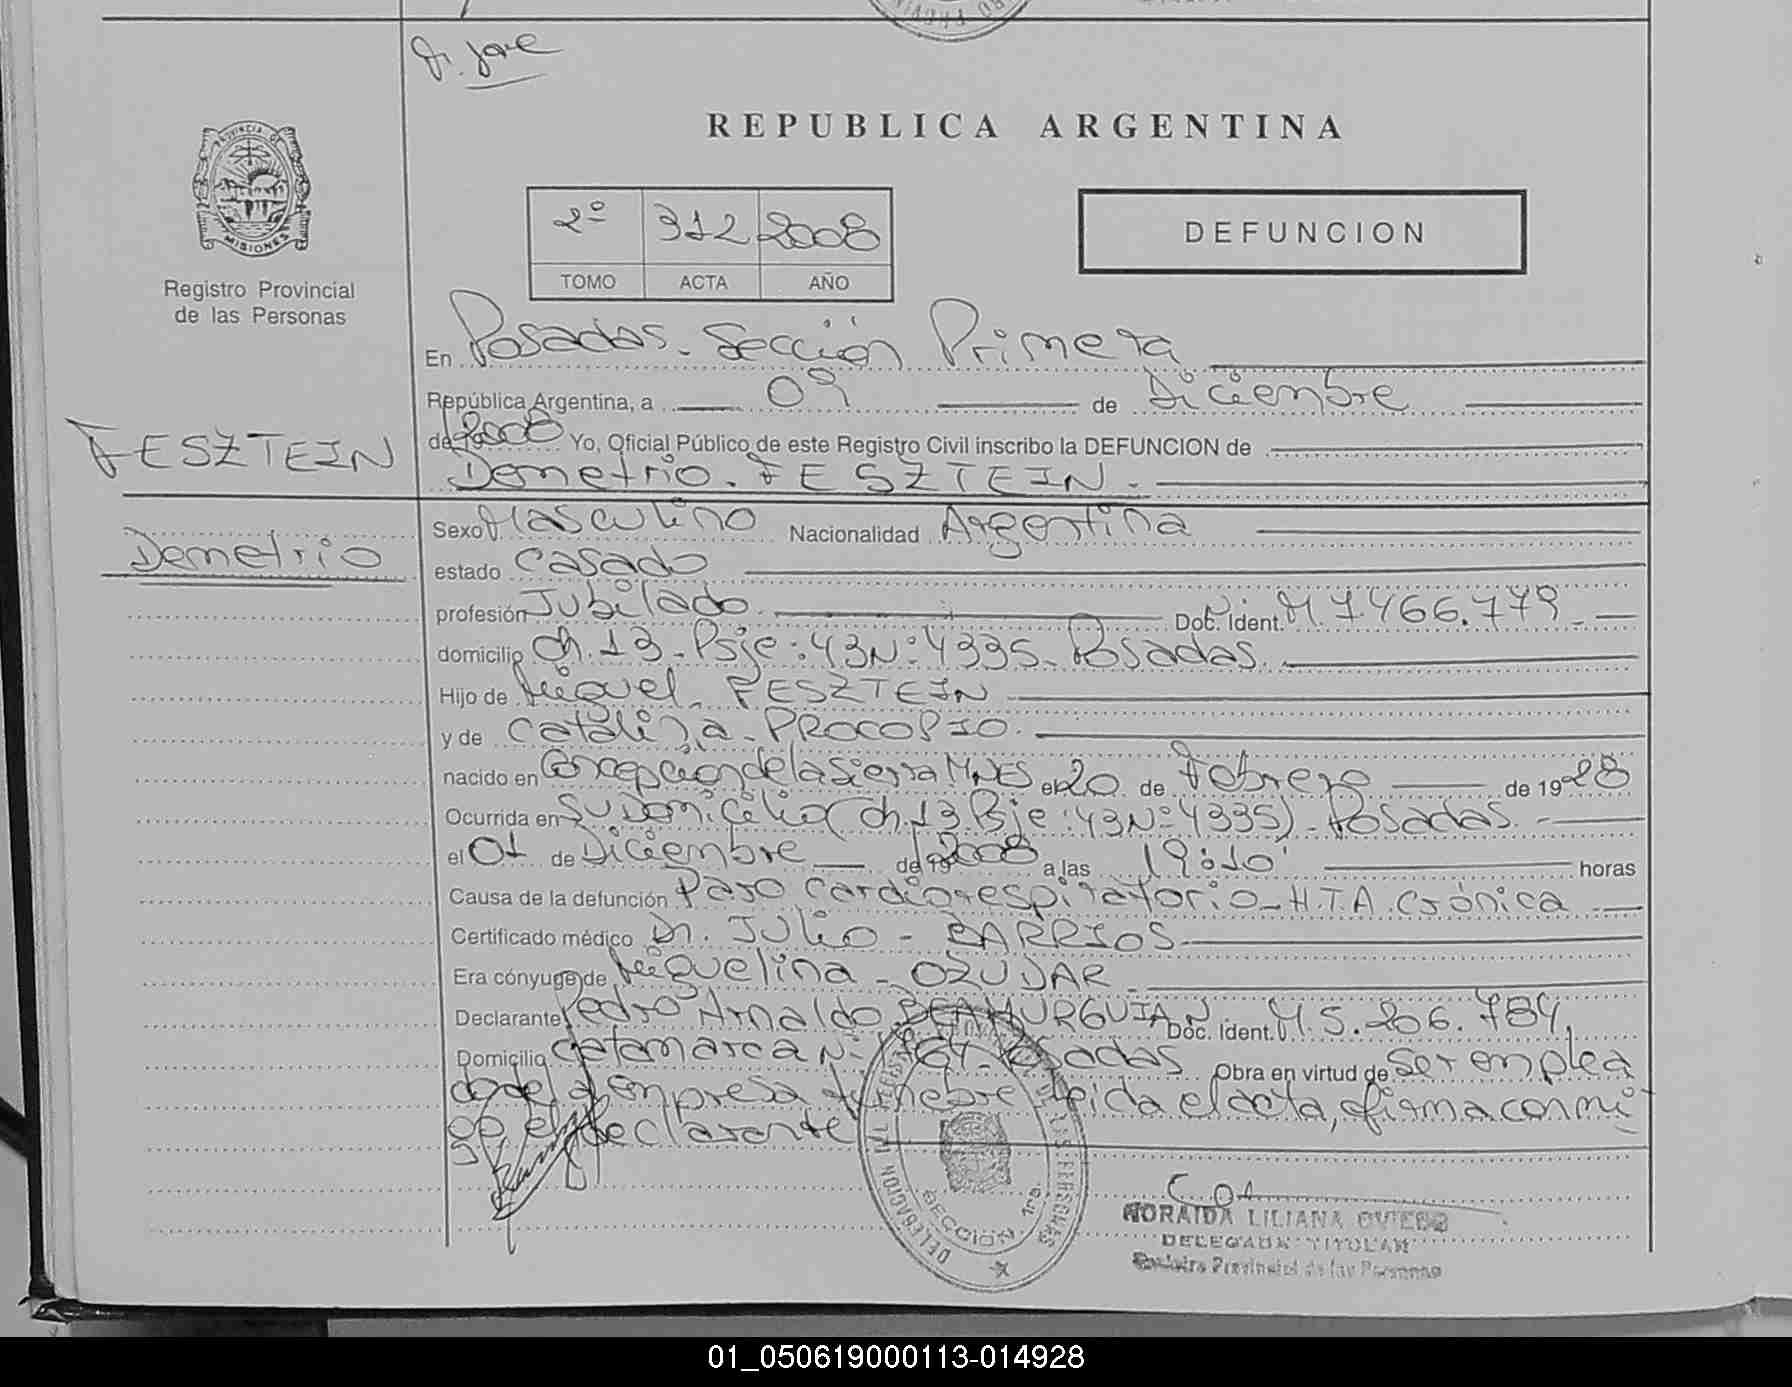 REPUBLICA ARGENTINA
PROVINCIA DE
MISIONES
Registro Provincial
de las Personas
2º 312 2008
TOMO ACTA AÑO
DEFUNCION
En Posadas. Sección Primera
República Argentina, a 09 de Diciembre
de 19 2008 Yo, Oficial Público de este Registro Civil inscribo la DEFUNCION de
FESZTEIN
Demetrio. FESZTEIN.
Demetrio
Sexo Masculino Nacionalidad Argentina
estado casado
profesión Jubilado. Doc. Ident. M. 7.466.779.
domicilio ch. 13 - Psje: 43 Nº: 4335. Posadas.
Hijo de Miguel. FESZTEIN
y de Catalina. PROCOPIO.
nacido en Concepcion de la Sierra MNES el 20 de Febrero de 1928
Ocurrida en su Domicilio (ch. 13 Psje: 43 Nº 4335). Posadas.
el 01 de Diciembre de 19 2008 a las 19:10' horas
Causa de la defunción Paro cardiorespiratorio - H.T.A. Crónica
Certificado médico Dr. Julio - BARRIOS
Era cónyuge de Miguelina - OZUJAR
Declarante Pedro Arnaldo Doc. Ident. M. 5.206.784.
Domicilio Catamarca Nº Posadas Obra en virtud de ser emplea
do de la Empresa funebre Leida el acta, firma conmi
go, el declarante
DELEGACION
SECCION 1ra.
DE LAS PERSONAS
NORAIDA LILIANA OVIEDO
DELEGADA TITULAR
Registro Provincial de las Personas
01_050619000113-014928